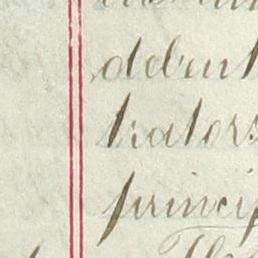 debent
trators
princip
The